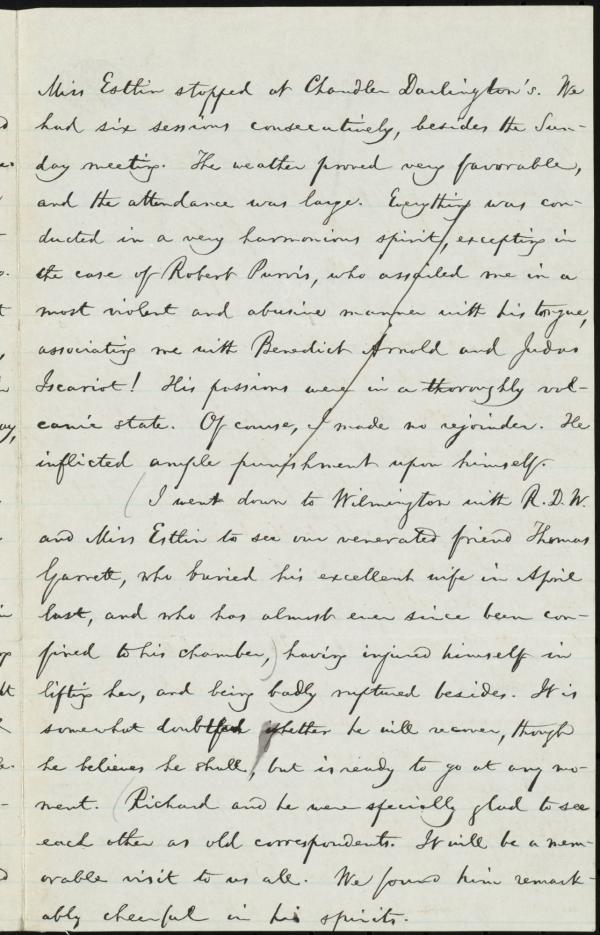 Miss Estlin stopped at Chandler Darlington's. We
had six sessions consecutively, besides the Sun-
day meeting. The weather proved very favorable,
and the attendance was large. Everything was con-
ducted in a very harmonious spirit, excepting in
the case of Robert Purvis, who assailed me in a
most violent and abusive manner with his tongue,
associating me with Benedict Arnold and Judas
Iscariot! His passions were in a thoroughly vol-
canic state. Of course, I made no rejoinder. He
inflicted ample punishment upon himself.
(I went down to Wilmington with R. D. W.
and Miss Estlin to see our venerated friend Thomas
Garrett, who buried his excellent wife in April
last, and who has almost ever since been con-
fined to his chamber,) having injured himself in
lifting her, and being badly ruptured besides. It is
somewhat doubtful whether he will recover, though
he believes he shall, but is ready to go at any mo-
ment. (Richard and he were specially glad to see
each other as old correspondents. It will be a mem-
orable visit to us all. We found him remark-
ably cheerful in his spirits.